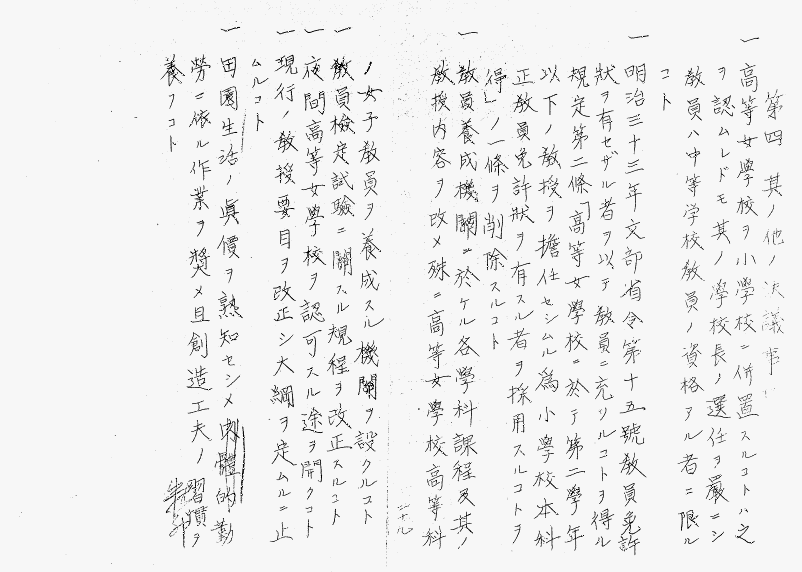 第四 其ノ他ノ決議事
一 高等女學校ヲ小學校ニ併置スルコトハ之
ヲ認ムレドモ其ノ學校長ノ選任ヲ嚴ニシ
教員ハ中等学校教員ノ資格アル者ニ限ル
コト
一 明治三十三年文部省令第十五號教員免許
狀ヲ有セザル者ヲ以テ教員ニ充ツルコトヲ得ル
規定第二條「高等女學校ニ於テ第二學年
以下ノ教授ヲ擔任セシムル爲小學校本科
正教員免許狀ヲ有スル者ヲ採用スルコトヲ
得」ノ一條ヲ削除スルコト
一 教員養成機關ニ於ケル各學科課程及其ノ
教授内容ヲ改メ殊ニ高等女學校高等科
二十九
ノ女子教員ヲ養成スル機關ヲ設クルコト
一 教員檢定試驗ニ關スル規程ヲ改正スルコト
一 夜間高等女學校ヲ認可スル途ヲ開クコト
一 現行ノ教授要目ヲ改正シ大綱ヲ定ムルニ止
ムルコト
一 田園生活ノ眞價ヲ熟知セシメ體的勤
勞ニ依ル作業ヲ奬メ且創造工夫ノ習慣ヲ
養フコト